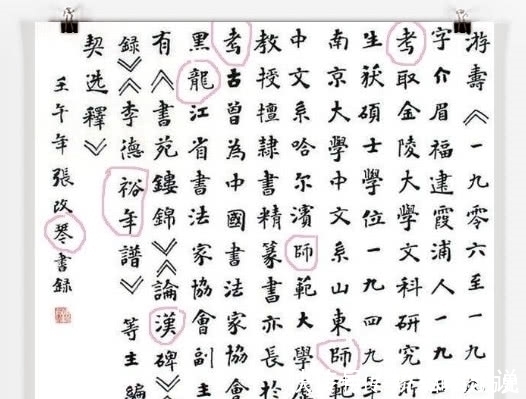 游壽《一九零六至一九
字介眉福建霞浦人一九
考取金陵大學文科研究所
生获碩士學位一九四九年
南京大學中文系山東師範
中文系哈尔濱師範大學
教授擅隷書精篆書亦長於
考古曾為中國書法家協會
黑龍江省書法家協會副主
有《書苑鏤錦》《論漢碑》《
録》《李德裕年譜》等主編
契选釋》
壬午年張改琴書録
说